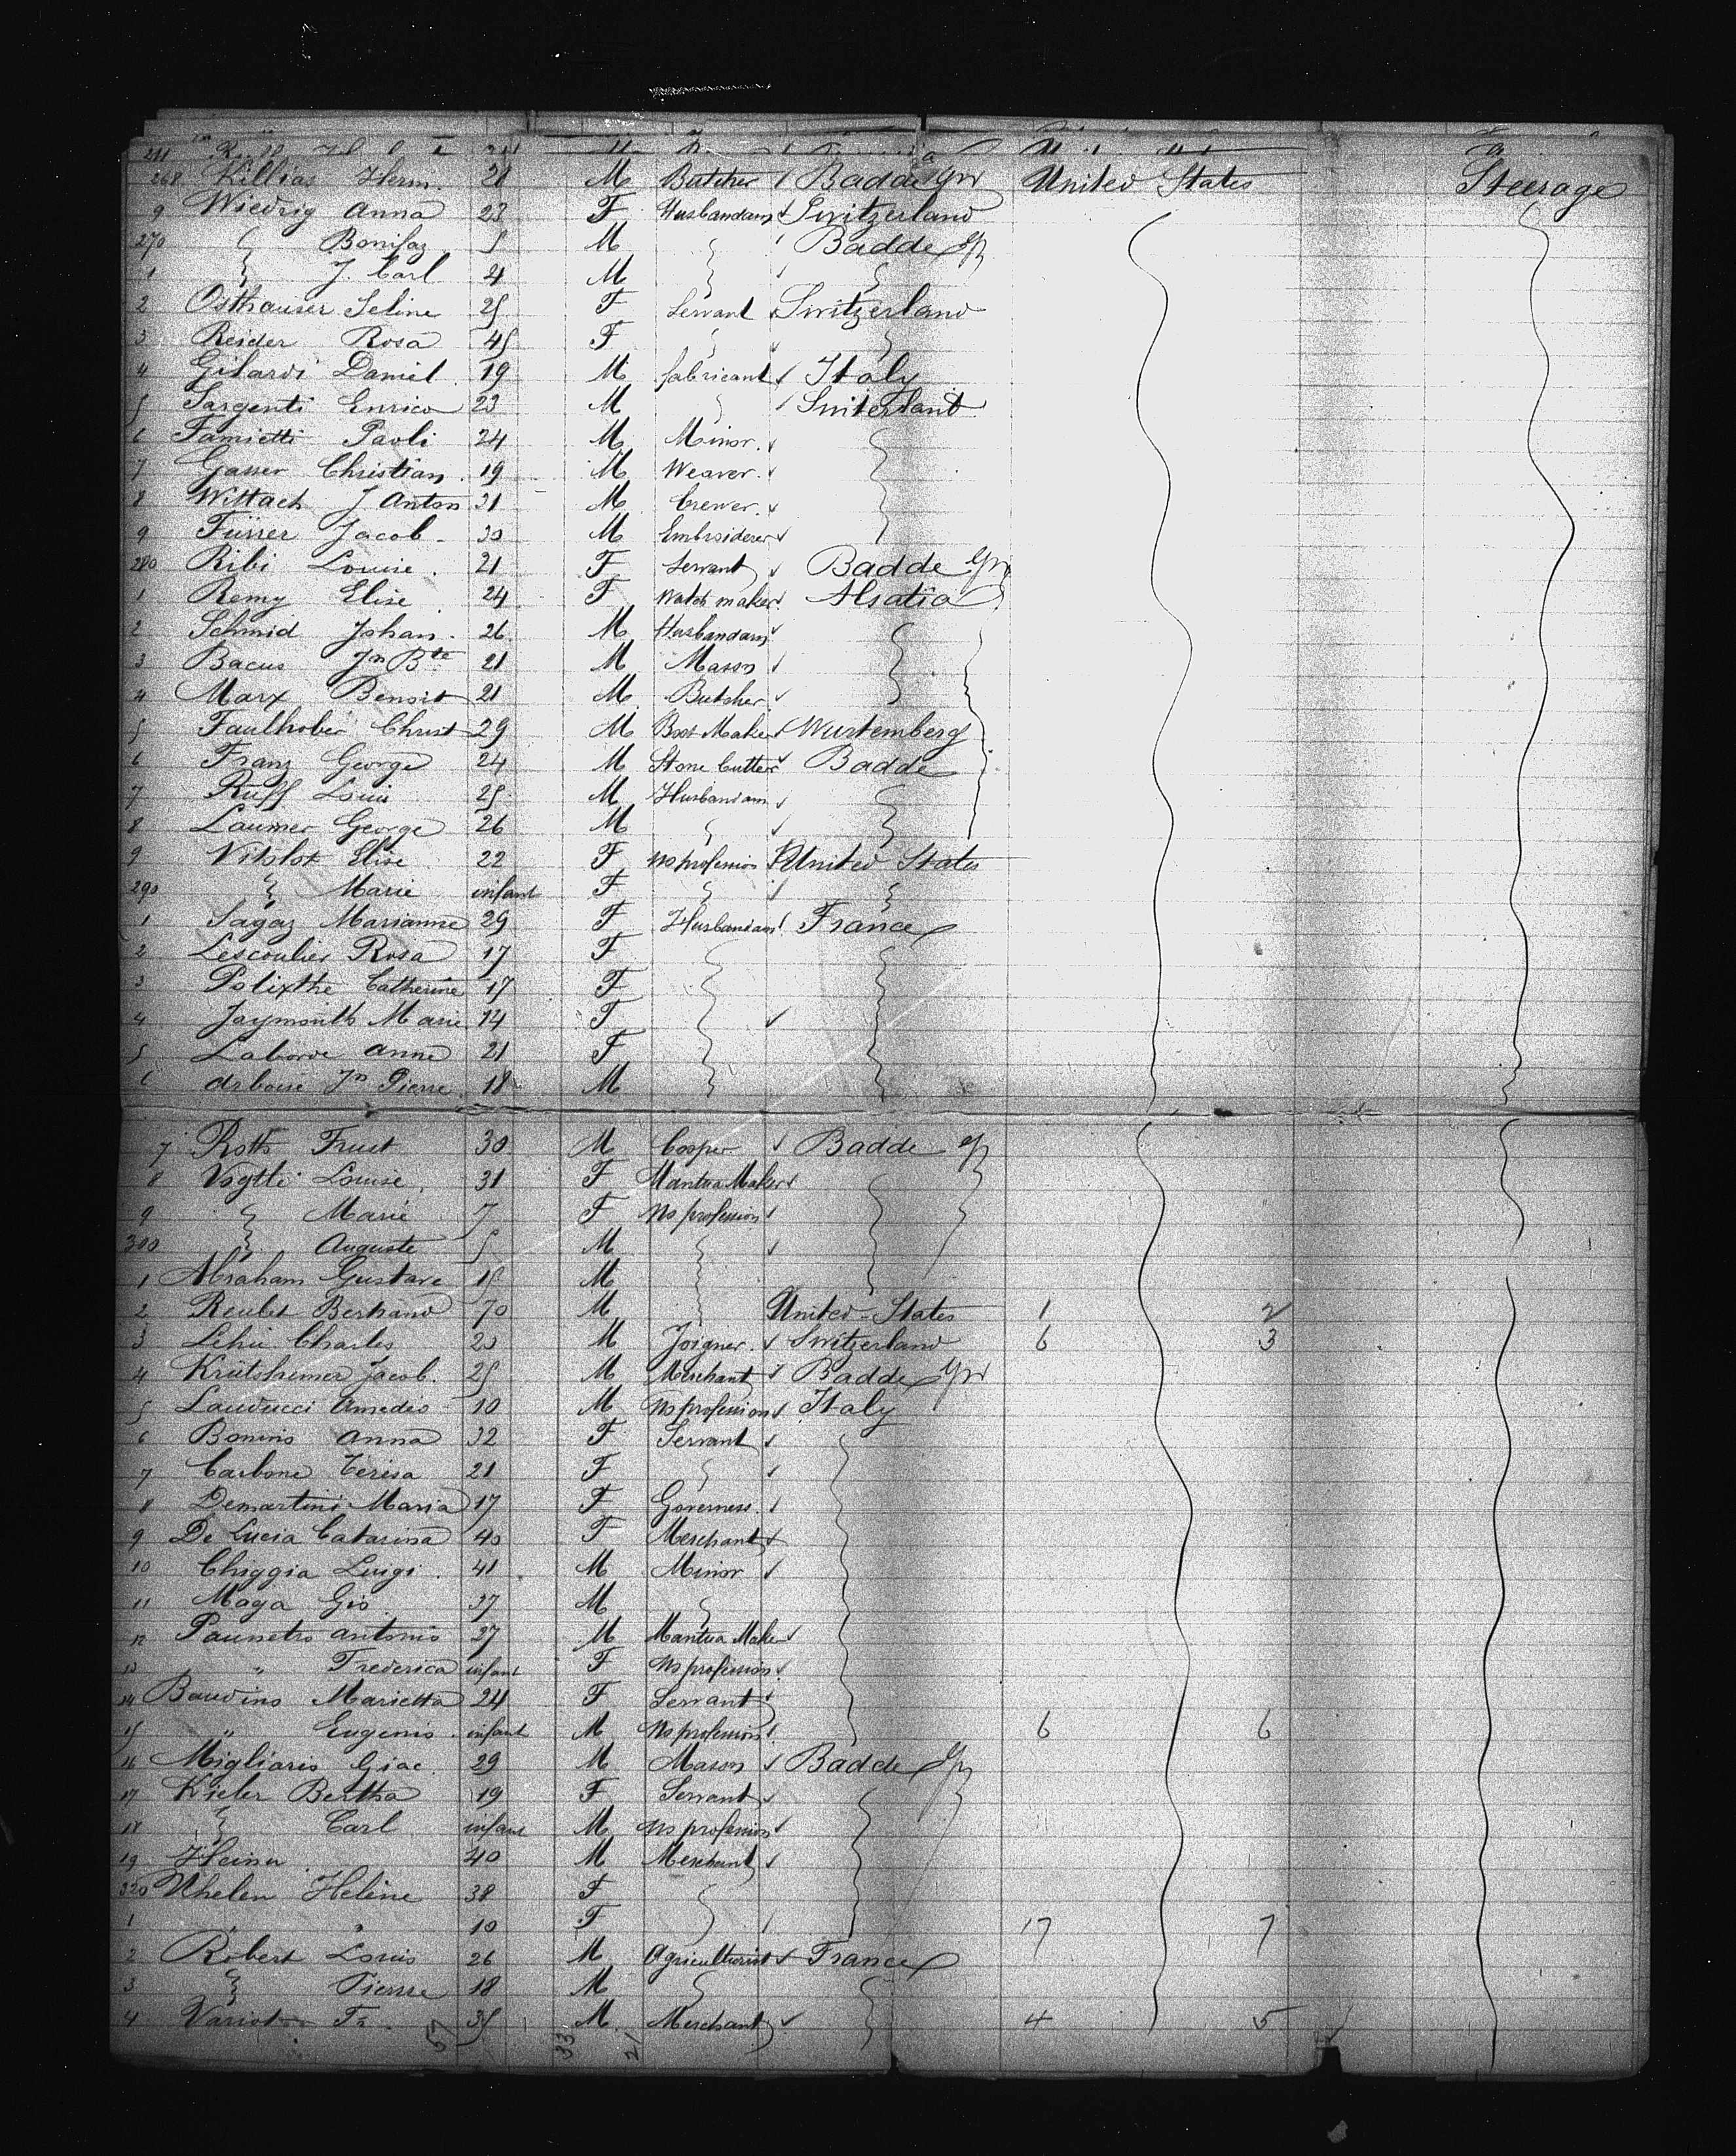 268 Killias Herm. 21 M Butcher Badde Gr United States Steerage
9 Wiedrig Anna 23 F Husbandam Switzerland
270 " Bonifaz 5 M " Badde Gr
1 " J. Carl 4 M " "
2 Osthauser Seline 25 F Servant Switzerland
3 Reider Rosa 45 F " "
4 Gilardi Daniel 19 M fabricant Italy
5 Sargenti Enrico 23 M " Switerland
6 Tamietti Paoli 24 M Minor.
7 Gasser Christian 19 M Weaver.
8 Wittach J Anton 31 M Crewer.
9 Fürrer Jacob 30 M Embroiderer
280 Ribi Louise 21 F Servant Badde Gr
1 Remy Elise 24 F Watch maker Alsatia
2 Schmid Johan 26 M Husbandam
3 Bacus Jn Bte 21 M Mason
4 Marx Benoit 21 M Butcher
5 Faulhober Christ 29 M Boot Maker Wurtemberg
6 Franz George 24 M Stone Cutter Badde
7 Ruff Louis 25 M Husbandam
8 Laumer George 26 M "
9 Vitolot Elise 22 F No profession United States
290 " Marie infant F " "
1 Sagaz Marianne 29 F Husbandam France
2 Lescoulier Rosa 17 F
3 Polixthe Catherine 17 F
4 Jaymonth Marie 14 F
5 Laborde Anne 21 F
6 Arboise Jn Pierre 18 M
7 Roth Frust 30 M Cooper Badde Gr
8 Vogtli Louise 31 F Mantua Maker
9 " Marie 7 F No profession
300 " Auguste 5 M
1 Abraham Gustave 15 M
2 Reulet Bertrand 70 M United-States 1 2
3 Lehu Charles 23 M Joigner Switzerland 6 3
4 Krütshimer Jacob. 25 M Merchant Badde Gr
5 Landucci Amedeo 10 M No profession Italy
6 Bonino Anna 32 F Servant
7 Carbone Teresa 21 F "
8 Demartini Maria 17 F Governess
9 De Lucia Catarina 40 F Merchant
10 Chiggia Luigi 41 M Minor
11 Maga Gio 37 M "
12 Paunetro Antonio 27 M Mantua Maker
13 " Frederica infant F No profession
14 Baudino Marietta 24 F Servant
15 " Eugenio infant M No profession 6 6
16 Migliaris Giac. 29 M Mason Badde Gr
17 Kieler Bertha 19 F Servant
18 " Carl infant M No profession
19 Heinu 40 M Merchant
320 Uhelen Helene 38 F
1 " " 10 F 17 7
2 Robert Louis 26 M Agriculturist France
3 " Pierre 18 M
4 Variot Fr. 35 M Merchant 4 5
57 33 21